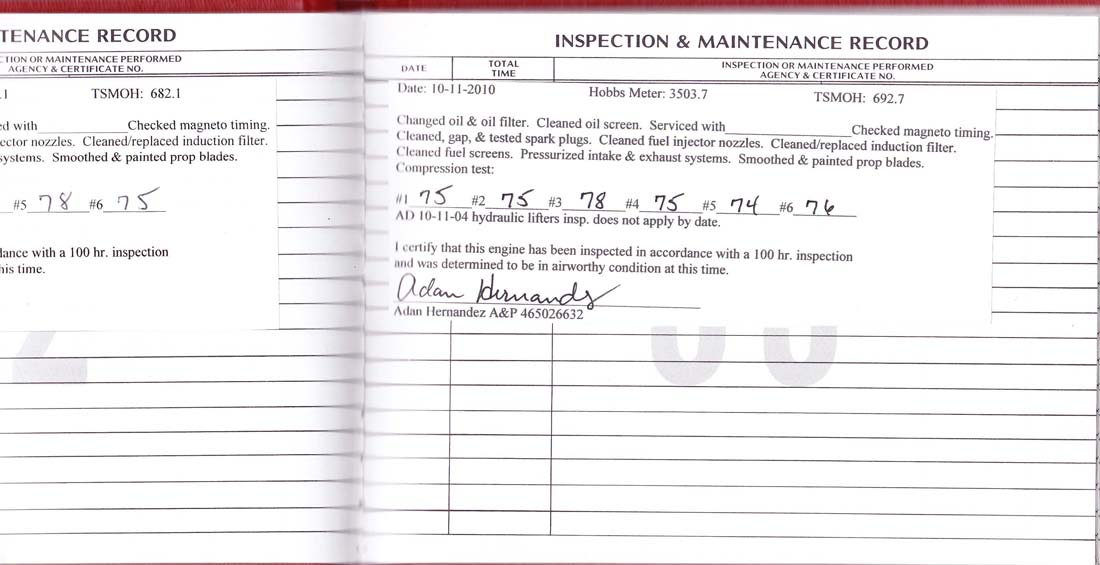 TENANCE RECORD
TION OR MAINTENANCE PERFORMED
AGENCY & CERTIFICATE NO.
.1 TSMOH: 682.1
ed with__________ Checked magneto timing.
ector nozzles. Cleaned/replaced induction filter.
systems. Smoothed & painted prop blades.
#5 78 #6 75
dance with a 100 hr. inspection
his time.
INSPECTION & MAINTENANCE RECORD
DATE TOTAL TIME INSPECTION OR MAINTENANCE PERFORMED
AGENCY & CERTIFICATE NO.
Date: 10-11-2010 Hobbs Meter: 3503.7 TSMOH: 692.7
Changed oil & oil filter. Cleaned oil screen. Serviced with__________ Checked magneto timing.
Cleaned, gap, & tested spark plugs. Cleaned fuel injector nozzles. Cleaned/replaced induction filter.
Cleaned fuel screens. Pressurized intake & exhaust systems. Smoothed & painted prop blades.
Compression test:
#1 75 #2 75 #3 78 #4 75 #5 74 #6 76
AD 10-11-04 hydraulic lifters insp. does not apply by date.
I certify that this engine has been inspected in accordance with a 100 hr. inspection
and was determined to be in airworthy condition at this time.
Adan Hernandz
Adan Hernandez A&P 465026632